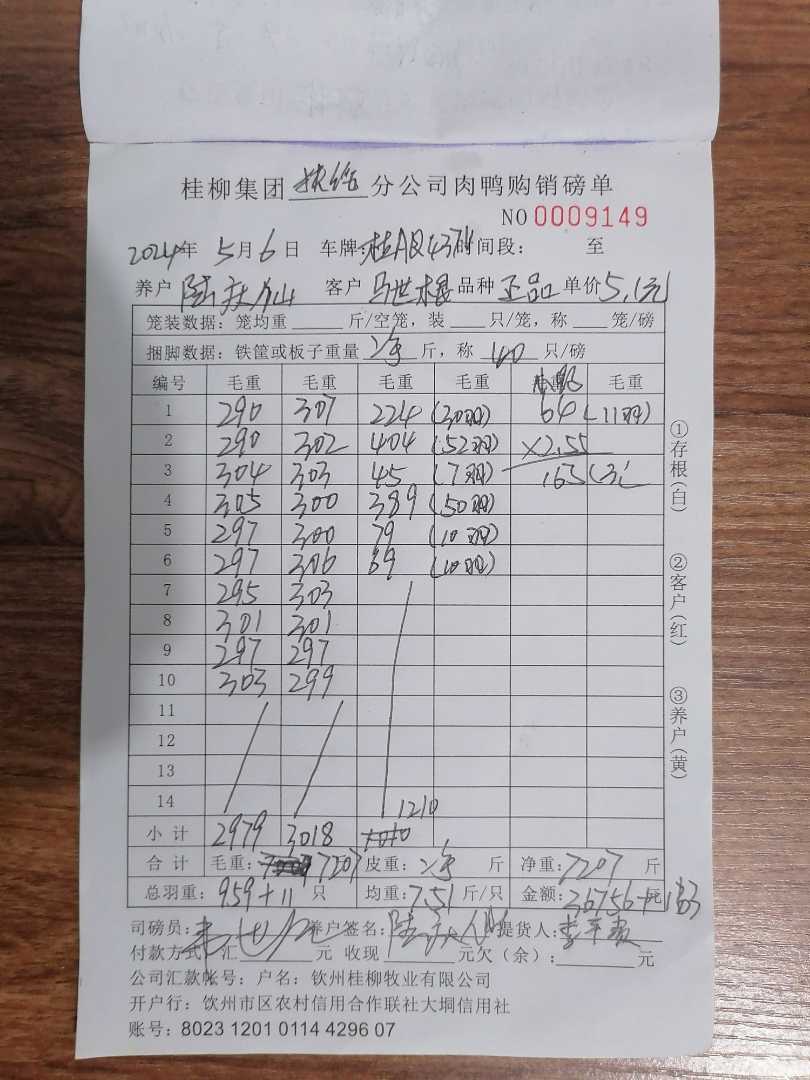 桂柳集团 分公司肉鸭购销磅单
NO 0009149
2024年 5月6日 车牌:桂A 时间段: 至
养户 陆 山 客户 马世 品种 正品 单价 5.1元
笼装数据: 笼均重 斤/空笼, 装 只/笼, 称 笼/磅
捆脚数据: 铁筐或板子重量 净 斤, 称 40 只/磅
编号 毛重 毛重 毛重 毛重 毛重
1 290 307 224 (30羽) 64 (11羽)
2 290 302 404 (52羽) ×2.55
3 304 303 45 (7羽) 163
4 305 300 389 (50羽)
5 297 300 79 (10羽)
6 297 306 69 (10羽)
7 295 303
8 301 301
9 297 297
10 303 299
11
12
13
14 1210
小计 2979 3018
合计 毛重: 7207 皮重: 净 斤 净重: 7207 斤
总羽重: 959+11 只 均重: 7.51 斤/只 金额: 36756元+163
司磅员: 养户签名: 陆 提货人: 李
付款方式: 汇 元 收现 元欠(余): 元
公司汇款帐号: 户名: 钦州桂柳牧业有限公司
开户行: 钦州市区农村信用合作联社大垌信用社
账号: 8023 1201 0114 4296 07
①存根(白)
②客户(红)
③养户(黄)